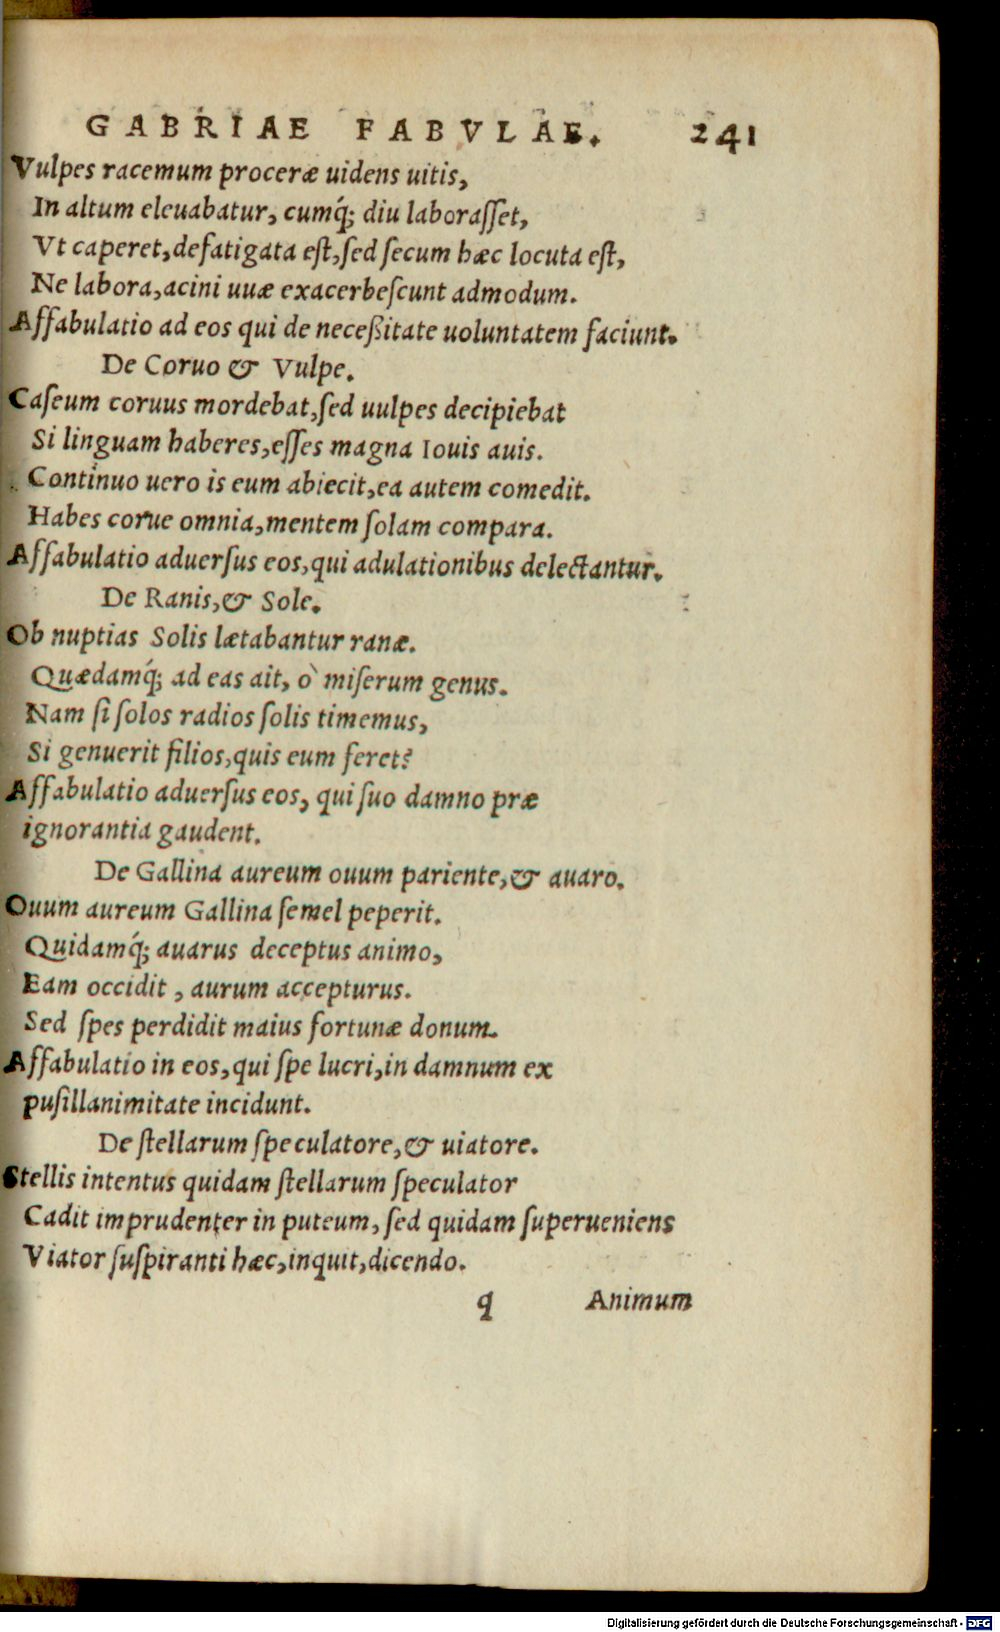 GABRIAE FABVLAE. 241
Vulpes racemum proceræ uidens uitis,
In altum eleuabatur, cumq́; diu laboraſſet,
Vt caperet, defatigata eſt, ſed ſecum hæc locuta eſt,
Ne labora, acini uuæ exacerbeſcunt admodum.
Affabulatio ad eos qui de neceßitate uoluntatem faciunt.
De Coruo & Vulpe.
Caſeum coruus mordebat, ſed uulpes decipiebat
Si linguam haberes, eſſes magna Iouis auis.
Continuo uero is eum abiecit, ea autem comedit.
Habes corue omnia, mentem ſolam compara.
Affabulatio aduerſus eos, qui adulationibus delectantur.
De Ranis, & Sole.
Ob nuptias Solis lætabantur ranæ.
Quædamq́; ad eas ait, ò miſerum genus.
Nam ſi ſolos radios ſolis timemus,
Si genuerit filios, quis eum feret?
Affabulatio aduerſus eos, qui ſuo damno præ
ignorantia gaudent.
De Gallina aureum ouum pariente, & auaro.
Ouum aureum Gallina ſemel peperit.
Quidamq́; auarus deceptus animo,
Eam occidit, aurum accepturus.
Sed ſpes perdidit maius fortunæ donum.
Affabulatio in eos, qui ſpe lucri, in damnum ex
puſillanimitate incidunt.
De ſtellarum ſpeculatore, & uiatore.
Stellis intentus quidam ſtellarum ſpeculator
Cadit imprudenter in puteum, ſed quidam ſuperueniens
Viator ſuſpiranti hæc, inquit, dicendo.
q Animum
Digitalisierung gefördert durch die Deutsche Forschungsgemeinschaft - DFG